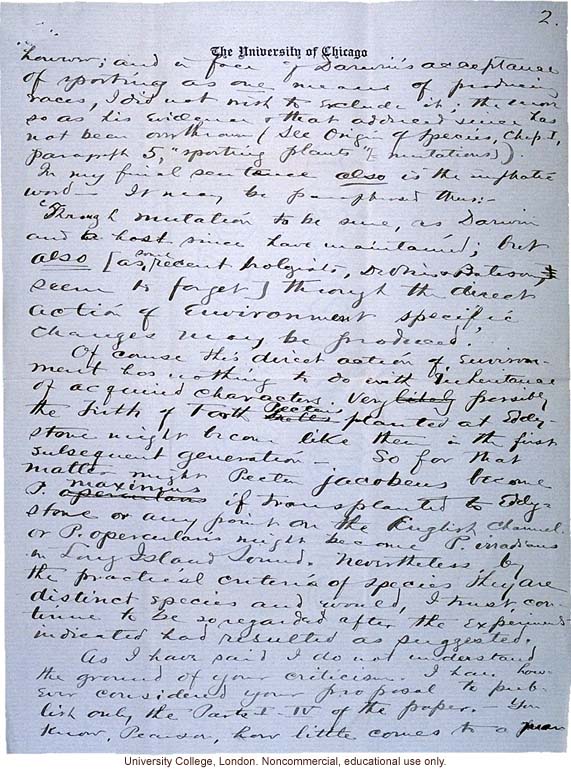 2.
The University of Chicago
however; and in face of Darwin's acceptance
of sporting as one means of producing
races, I did not wish to exclude it; the more
so as his evidence & that adduced since has
not been overthrown (See Origin of Species, Chap. I,
paragraph 5, "sporting plants" = mutations).
In my final sentence also is the emphatic
word — It may be paraphrased thus:-
"Through mutation to be sure, as Darwin
and a host since have maintained; but
also [as some recent biologists, Bateson,
seem to forget] through the direct
action of environment specific
changes may be produced.
Of course this direct action of environ-
ment has nothing to do with inheritance
of acquired characters. Very likely possibly
the Firth of Forth Pectens planted at Eddy-
stone might become like them in the first
subsequent generation — So for that
matter might Pecten jacobeus become
P. maximus operculans if transplanted to Eddy-
stone or any point on the English Channel
or P. operculans might become P. irradians
in Long Island Sound. Nevertheless, by
the practical criteria of species they are
distinct species and would, I trust, con-
tinue to be so regarded after the experiment
indicated had resulted as suggested.
As I have said I do not understand
the ground of your criticism. I have how-
ever considered your proposal to pub-
lish only the Parts I-IV of the paper. — You
know, Pearson, how little comes to a man
University College, London. Noncommercial, educational use only.